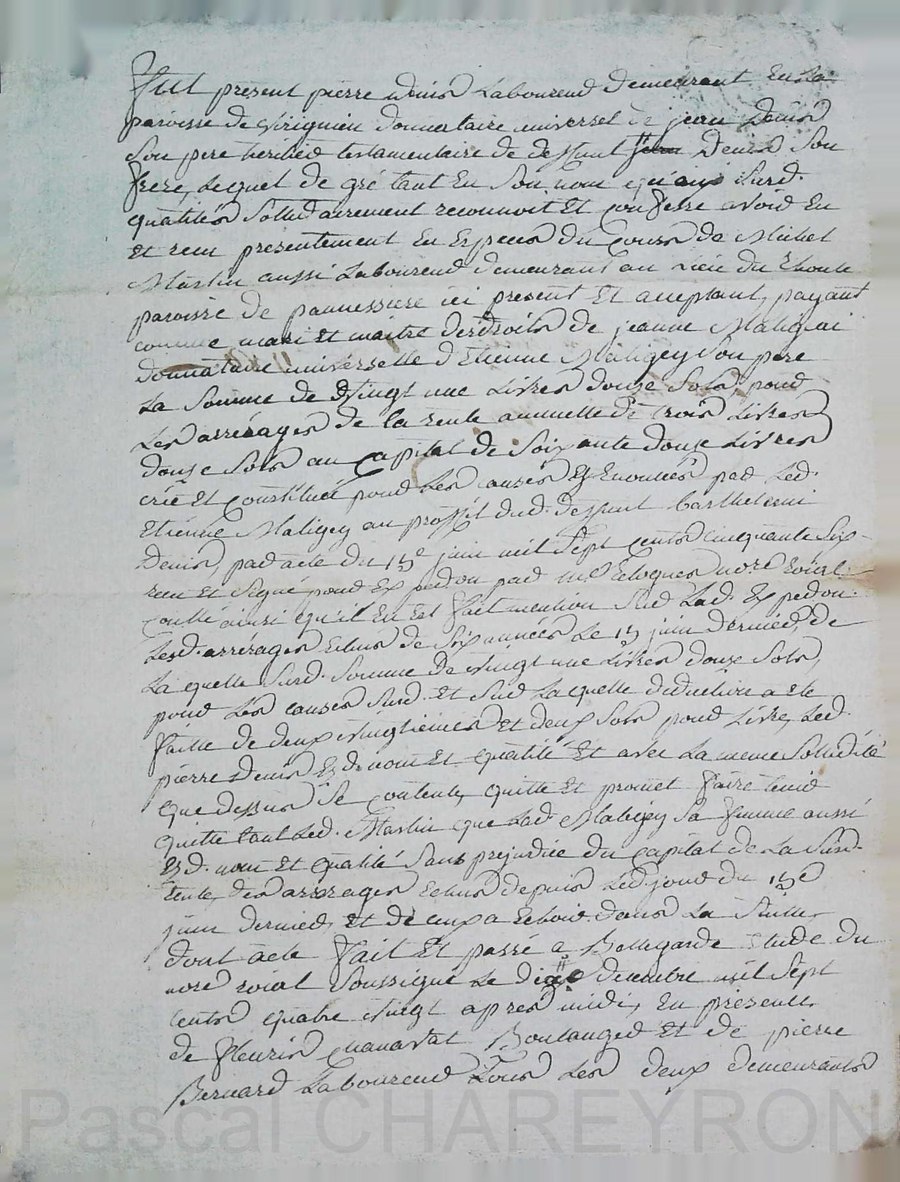 Fut présent pierre Denis Laboureur demeurant En la
paroisse de donnataire universel de jean Denis
Son pere heritier testamentaire de deffunt Denis Son
frere, Lequel de gré tant En Son nom qu'aux Susd.
qualités Sollidairement reconnoit Et Confesse avoir Eu
Et recu présentement En Especes du Cours de Michel
Martin aussi Laboureur demeurant au Lieu du
paroisse de pannessiere ici présent Et acceptant, payant
comme mari Et maitre des droits de jeanne
donnataire universelle d'Etienne Matigey Son pere
La Somme de Vingt une Livres douze Sols, pour
Les arrérages de la rente annuelle de trois Livres
douze Sols au Capital de Soixante douze Livres
créé Et Constituée pour Les causes Et Enoncées par Led.
Etienne Matigey au proffit dud. deffunt barthelemi
Denis, par acte du 15e juin mil Sept cents cinquante Six
recu Et Signé pour Expedon par Me nore Roial
ainsi qu'il En Est fait mention Sur Lad. Expedon.
Lesd. arrérages Echus de Six années Le 15 juin dernier, de
La quelle Susd. Somme de Vingt une Livres douze Sols,
pour Les causes Susd. Et Sur La quelle deduction a eté
faitte de deux Vingtiemes Et deux Sols pour Livre, Led.
pierre Denis Esd. nom Et qualité Et avec La meme Sollidité
que dessus Se contente, quitte Et promet faire tenir
quitte tant Led. Martin que Lad. Matigey Sa femme aussi
Esd. nom Et qualité Sans prejudice du Capital de La Susd.
rente, des arrérages Echus depuis Led. jour du 15e
juin dernier, Et de ceux a Echoir dans La Suitte,
dont acte fait Et passé a Bellegarde Etude du
nore roial Soussigné Le decembre mil Sept
cents quatre Vingt apres midi, En présence
de fleuris Boulanger Et de pierre
Bernard Laboureur Tous Les deux demeurants
Pascal CHAREYRON